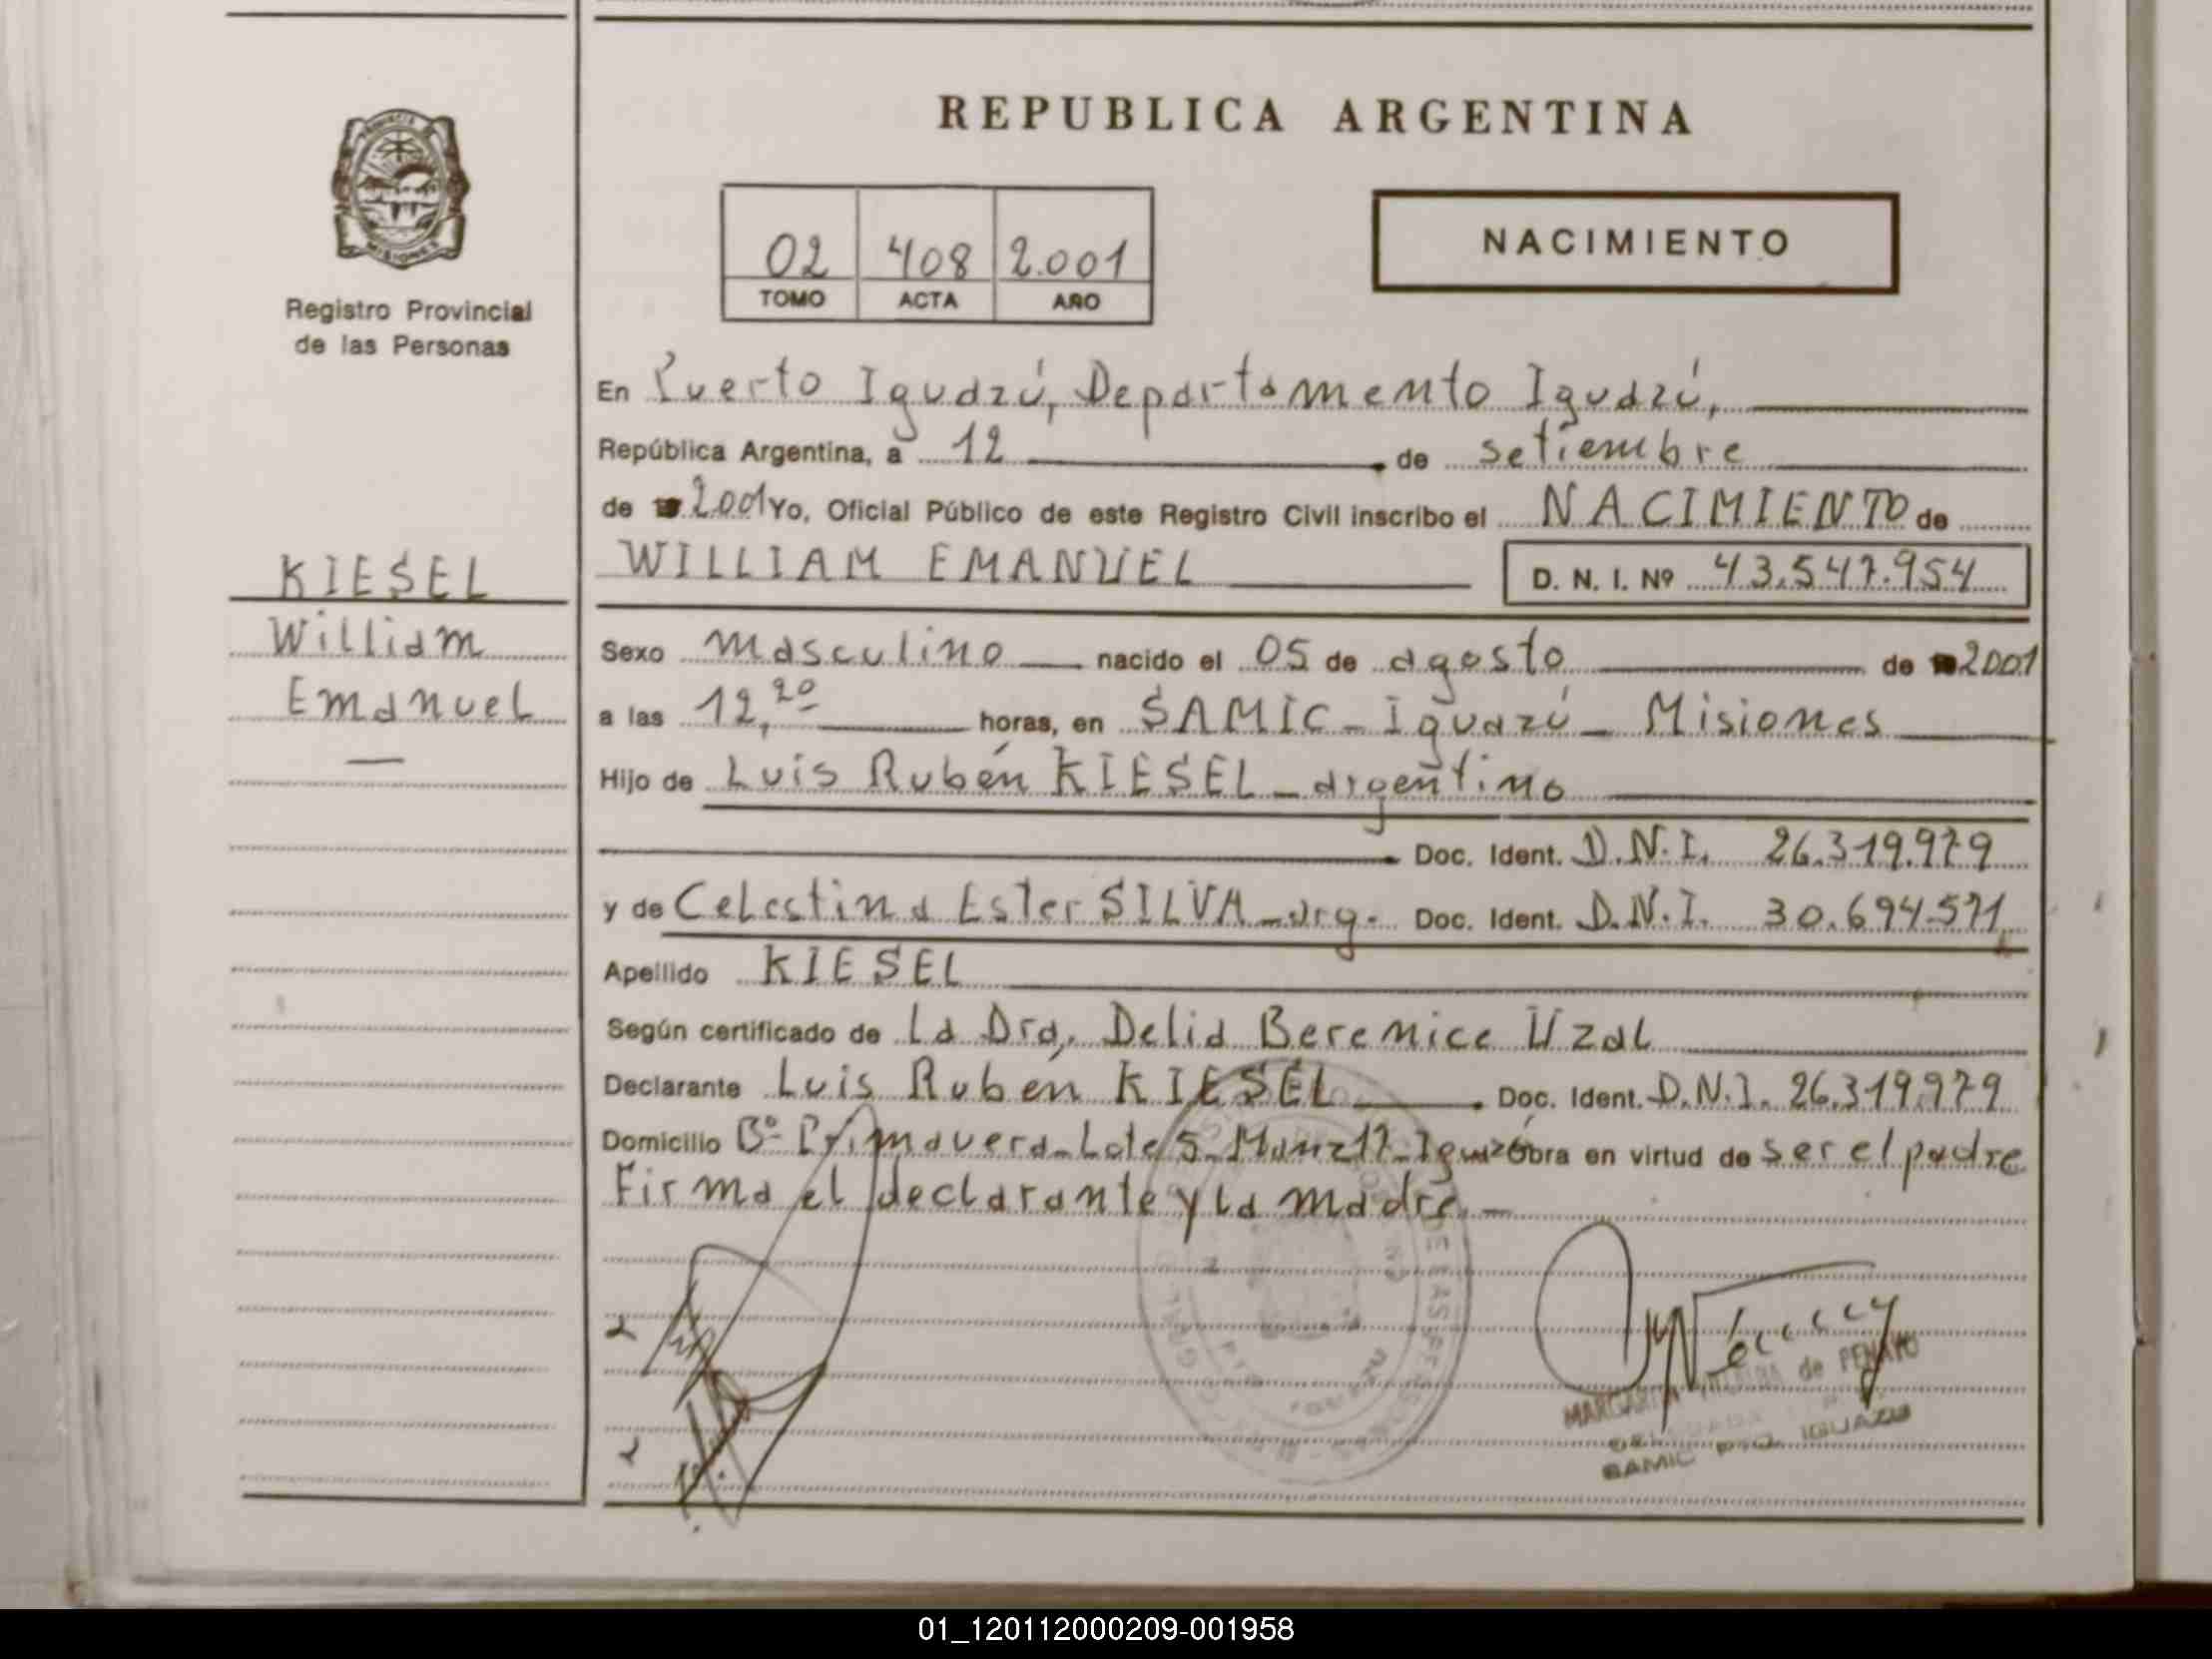 REPUBLICA ARGENTINA
PROVINCIA
MISIONES
Registro Provincial
de las Personas
02 408 2.001
TOMO ACTA AÑO
NACIMIENTO
En Puerto Iguazú, Departamento Iguazú,
República Argentina, a 12 de setiembre
de 2001 Yo, Oficial Público de este Registro Civil inscribo el NACIMIENTO de
WILLIAM EMANUEL D. N. I. Nº 43.547.954
KIESEL
William
Emanuel
Sexo masculino nacido el 05 de agosto de 2001
a las 12,20 horas, en SAMIC - Iguazú - Misiones
Hijo de Luis Rubén KIESEL - argentino
Doc. Ident. D.N.I. 26.319.979
y de Celestina Ester SILVA - arg. Doc. Ident. D.N.I. 30.694.571
Apellido KIESEL
Según certificado de La Dra. Delia Berenice Uzal
Declarante Luis Rubén KIESEL Doc. Ident. D.N.I. 26.319.979
Domicilio Bº Primavera - Lote 5 - Manz 17 - Iguazú Obra en virtud de ser el padre
Firma el declarante y la madre. -
MARGARITA de PENAYO
SAMIC PTO. IGUAZU
01_120112000209-001958